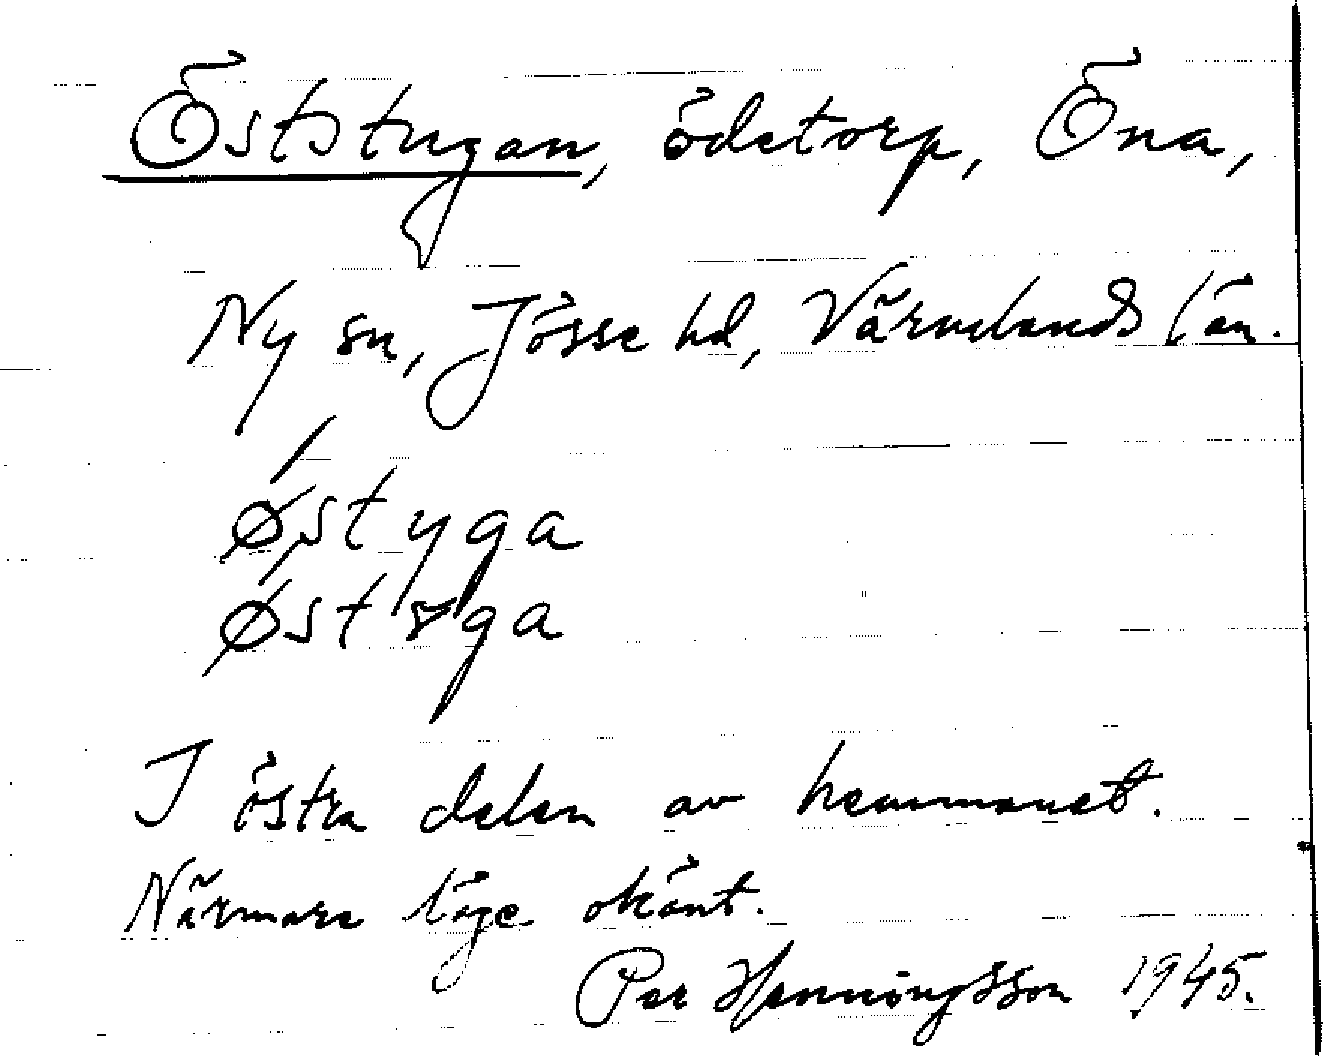 Öststugan, ödetorp, Öna,
Ny sn, Jösse hd, Värmlands län.
Østyga
Østøga
I östra delen av hemmanet.
Närmare läge okänt.
Per Henningsson 1945.